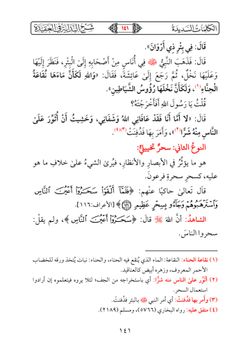 الكلمات السديدة
١٤١
شرح البداية في العقيدة
قَالَ: فِي بِئْرِ ذِي أَرْوَانَ».
قَالَ: فَذَهَبَ النَّبِيُّ ﷺ فِي أُنَاسٍ مِنْ أَصْحَابِهِ إِلَى الْبِئْرِ، فَنَظَرَ إِلَيْهَا
وَعَلَيْهَا نَخْلٌ، ثُمَّ رَجَعَ إِلَى عَائِشَةَ، فَقَالَ: «وَاللهِ لَكَأَنَّ مَاءَهَا نُقَاعَةُ
الْحِنَّاءِ(١)، وَلَكَأَنَّ نَخْلَهَا رُؤُوسُ الشَّيَاطِينِ».
قُلْتُ يَا رَسُولَ اللهِ أَفَأَخْرَجْتَهُ؟
قَالَ: «لَا أَمَّا أَنَا فَقَدْ عَافَانِيَ اللهُ وَشَفَانِي، وَخَشِيتُ أَنْ أُثَوِّرَ عَلَى
النَّاسِ مِنْهُ شَرًّا(٢)»، وَأَمَرَ بِهَا فَدُفِنَتْ(٣)(٤).
النوعُ الثاني: سحرٌ تخييليٌّ:
هو ما يؤثِّرُ في الأبصارِ والأنظارِ، فيرى الشيءُ على خلافِ ما هو
عليه، كسحرِ سحرةِ فرعونَ.
قال تعالى حاكيًا عنهم: ﴿فَلَمَّا أَلْقَوْا سَحَرُوا أَعْيُنَ النَّاسِ
وَاسْتَرْهَبُوهُمْ وَجَاءُو بِسِحْرٍ عَظِيمٍ ﴾ [الأعراف:١١٦].
الشاهدُ: أنَّ اللهَ ﷻ قال: ﴿سَحَرُوا أَعْيُنَ النَّاسِ﴾، ولم يقلْ:
سحروا الناسَ.
(١) نقاعة الحناء: النقاعة: الماء الذي يُنقع فيه الحناء، والحناء: نبات يُتخذ ورقه للخضاب
الأحمر المعروف، وزهره أبيض كالعناقيد.
(٢) أثوِّر على الناس منه شرًّا: أي باستخراجه من الجف؛ لئلا يروه فيتعلموه إن أرادوا
استعمال السحر.
(٣) وأمر بها فدُفنت: أي أمر النبي ﷺ بالبئر فدُفنت.
(٤) متفق عليه: رواه البخاري (٥٧٦٦)، ومسلم (٢١٨٩).
١٤١